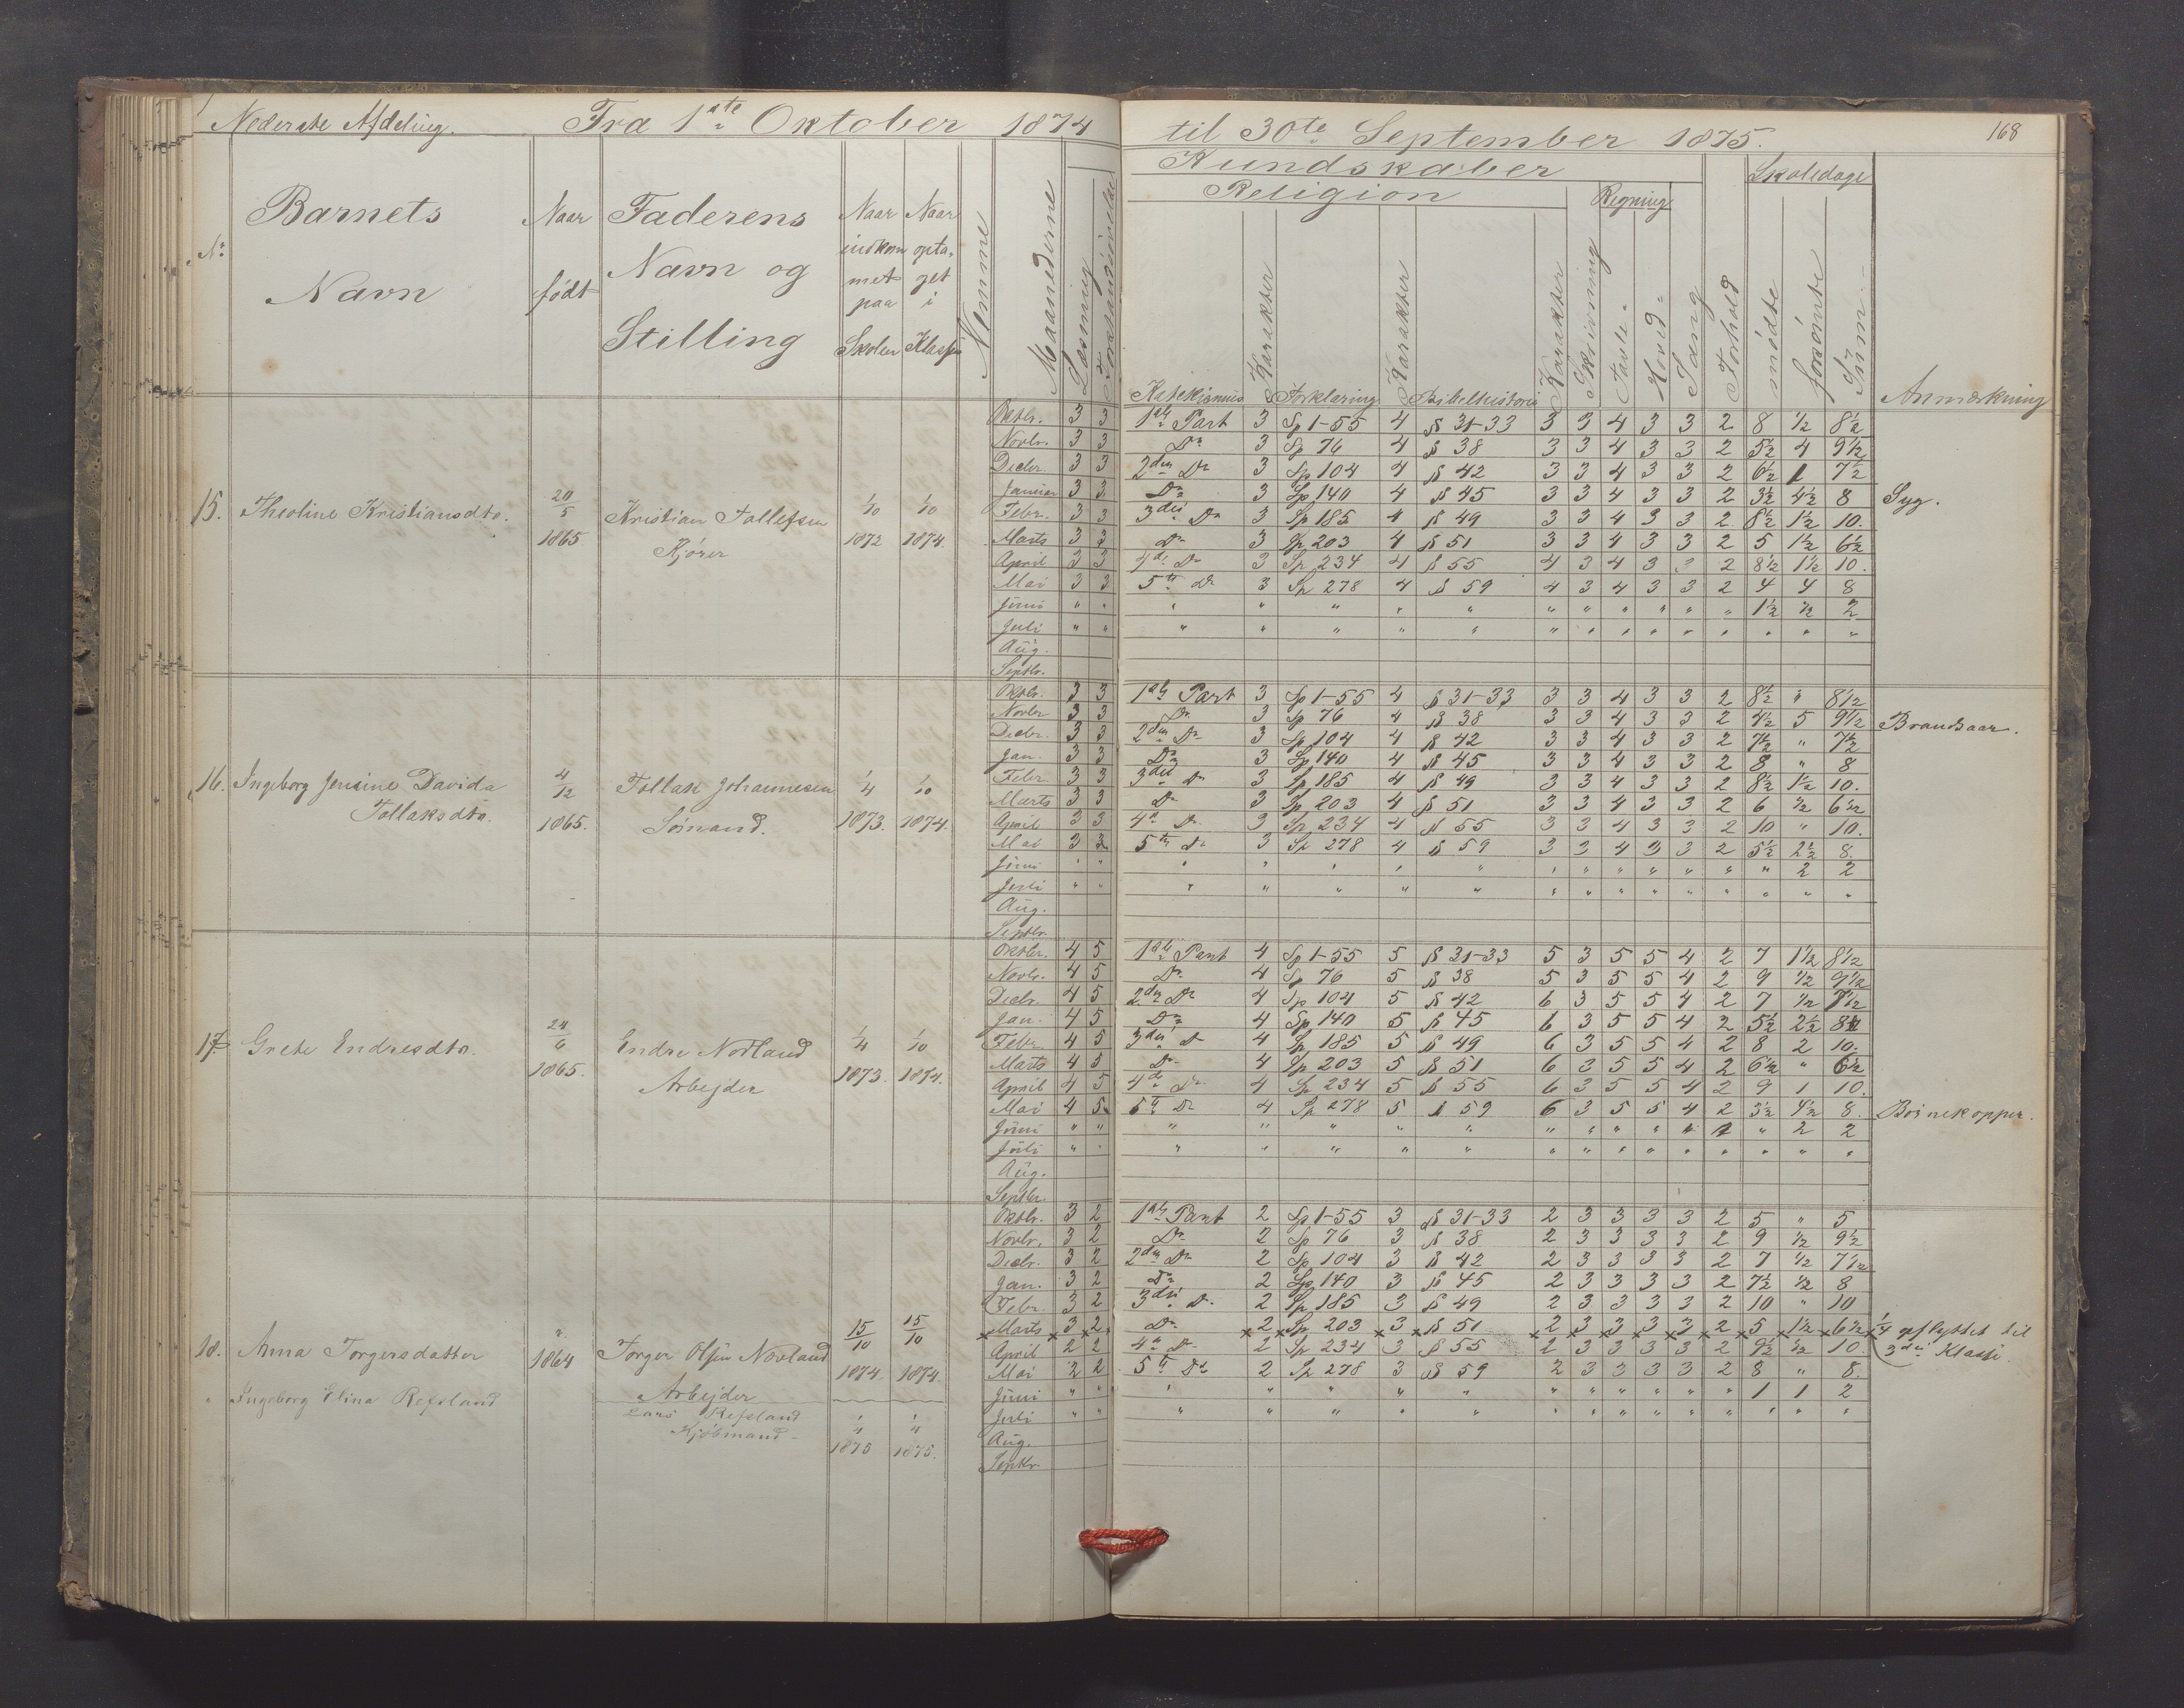 Nederste Afdeling. Fra 1ste Oktober 1874 til 30te September 1875. 168
Kundskaber
Religion Regning Skoledage
No Barnets Navn Naar født Faderens Navn og Stilling Naar indkommet paa Skolen Naar optaget i Klassen Nemme Maanederne Læsning Forstandsøvelse Katekismus Karakter Forklaring Karakter Bibelhistorie Karakter Skrivning Tavle- Hoved- Sang Forhold mødte forsømte Sum Anmerkning
Oktbr. 3 3 1ste Part 3 Sp 1-55 4 § 31-33 3 3 4 3 3 2 8 1/2 8 1/2
Novbr. 3 3 Do 3 Sp 76 4 § 38 3 3 4 3 3 2 5 1/2 4 9 1/2
Decbr. 3 3 2den Do 3 Sp 104 4 § 42 3 3 4 3 3 2 6 1/2 1 7 1/2
Januar 3 3 Do 3 Sp 140 4 § 45 3 3 4 3 3 2 3 1/2 4 1/2 8 Syg.
15. Theoline Kristiansdtr. 20/5 1865 Kristian Tollefsen Kjører 1/10 1872 1/10 1874.
Febr. 3 3 3die Do 3 Sp 185 4 § 49 3 3 4 3 3 2 8 1/2 1 1/2 10.
Marts 3 3 Do 3 Sp 203 4 § 51 3 3 4 3 3 2 5 1 1/2 6 1/2
April 3 3 4de Do 3 Sp 234 4 § 55 4 3 4 3 3 2 8 1/2 1 1/2 10.
Mai 3 3 5te Do 3 Sp 278 4 § 59 4 3 4 3 3 2 4 4 8
Juni " " " " " " " " " " " " " 1 1/2 1/2 2
Juli " " " " " " " " " " " " " " " "
Aug.
Septbr.
Oktbr. 3 3 1ste Part 3 Sp 1-55 4 § 31-33 3 3 4 3 3 2 8 1/2 " 8 1/2
Novbr 3 3 Do 3 Sp 76 4 § 38 3 3 4 3 3 2 4 1/2 5 9 1/2 Brandsaar.
Decbr. 3 3 2den Do 3 Sp 104 4 § 42 3 3 4 3 3 2 7 1/2 " 7 1/2
Jan. 3 3 Do 3 Sp 140 4 § 45 3 3 4 3 3 2 8 " 8
16. Ingeborg Jensine Davida Tollaksdtr. 4/12 1865. Tollak Johannesen Sømand. 1/4 1873. 1/10 1874.
Febr 3 3 3die Do 3 Sp 185 4 § 49 3 3 4 3 3 2 8 1/2 1 1/2 10.
Marts 3 3 Do 3 Sp 203 4 § 51 3 3 4 3 3 2 6 1/2 6 1/2
April 3 3 4de Do 3 Sp. 234 4 § 55 3 3 4 3 3 2 10 " 10.
Mai 3 3 5te Do 3 Sp 278 4 § 59 3 3 4 3 3 2 5 1/2 2 1/2 8.
Juni " " " " " " " " " " " " " " 2 2
Juli " " " " " " " " " " " " " " " "
Aug.
Septbr.
Oktbr. 4 5 1ste Part 4 Sp 1-55 5 § 31-33 5 3 5 5 4 2 7 1 1/2 8 1/2
Novbr. 4 5 Do 4 Sp 76 5 § 38 5 3 5 5 4 2 9 1/2 9 1/2
Decbr. 4 5 2den Do 4 Sp 104 5 § 42 6 3 5 5 4 2 7 1/2 7 1/2
Jan. 4 5 Do 4 Sp 140 5 § 45 6 3 5 5 4 2 5 1/2 2 1/2 8
17 Grete Endresdtr. 24/6 1865. Endre Norland Arbejder 1/4 1873. 1/10 1874.
Febr 4 5 3die Do 4 Sp 185 5 § 49 6 3 5 5 4 2 8 2 10.
Marts 4 5 Do 4 Sp 203 5 § 51 6 3 5 5 4 2 6 1/2 " 6 1/2
April 4 5 4de Do 4 Sp 234 5 § 55 6 3 5 5 4 2 9 1 10.
Mai 4 5 5te Do 4 Sp 278 5 § 59 6 3 5 5 4 2 3 1/2 4 1/2 8. Børnekopper.
Juni " " " " " " " " " " " " " " 2 2
Juli " " " " " " " " " " " " " " " "
Aug.
Septbr.
Oktbr. 3 2 1ste Part 2 Sp 1-55 3 § 31-33 2 3 3 3 3 2 5 " 5
Novbr. 3 2 Do 2 Sp 76 3 § 38 2 3 3 3 3 2 9 1/2 9 1/2
Decbr. 3 2 2den Do 2 Sp 104 3 § 42 2 3 3 3 3 2 7 1/2 7 1/2
Jan. 3 2 Do 2 Sp 140 3 § 45 2 3 3 3 3 2 7 1/2 1/2 8
Febr. 3 2 3die Do 2 Sp 185 3 § 49 2 3 3 3 3 2 10 " 10
Marts 3 2 Do 2 Sp 203 3 § 51 2 3 3 3 3 2 5 1 1/2 6 1/2 1/4 opflyttet til 3die Klasse.
18. Anna Torgersdatter " 1864 Torger Olsen Norland Arbejder 15/10 1874. 15/10 1874.
April 2 2 4de Do 2 Sp 234 3 § 55 2 3 3 3 3 2 9 1/2 1/2 10.
Mai 2 2 5te Do 2 Sp 278 3 § 59 2 3 3 3 3 2 8 " 8.
" Ingeborg Elina Refsland Lars Refsland Kjøbmand - 1/4 1875 1/4 1875.
Juni " " " " " " " " " " " " " 1 1 2
Juli " " " " " " " " " " " " " " " "
Aug.
Septbr.